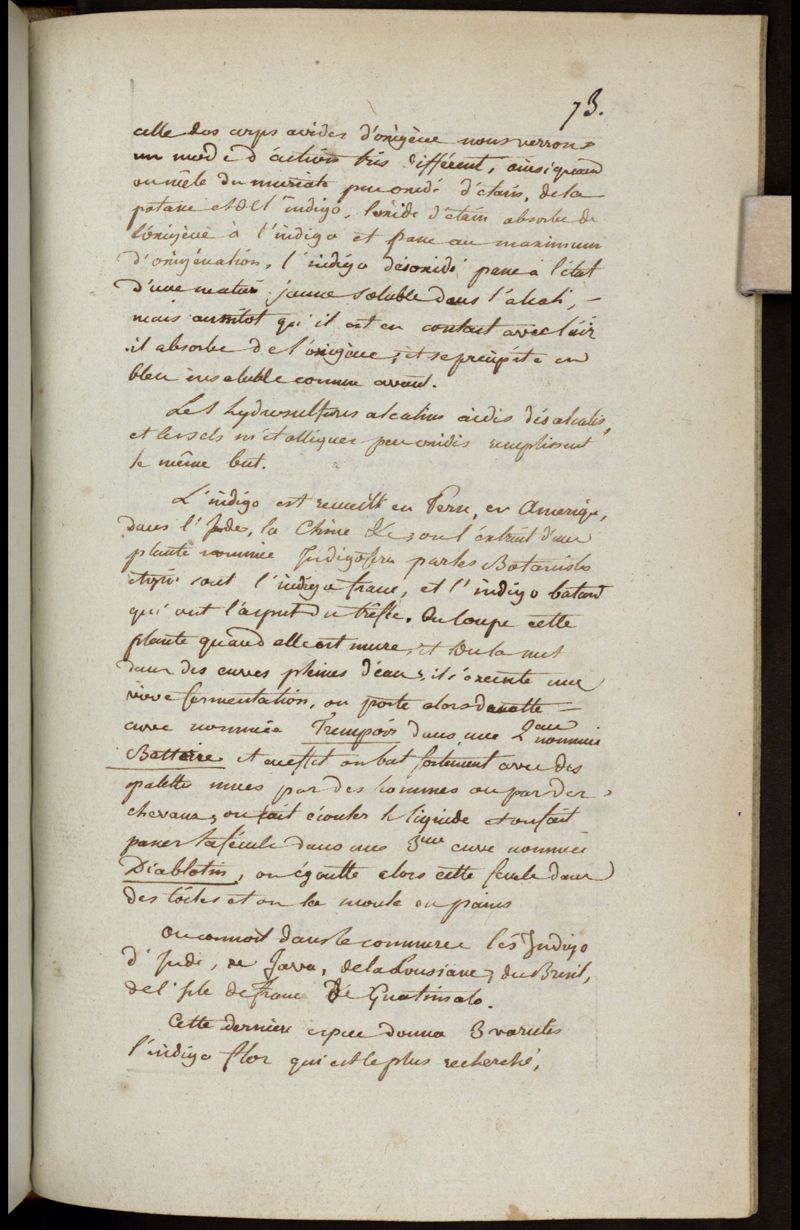 73.
celle des corps avides d'oxigène nous verrons
un mode d'action très différent, ainsi quand
on mêle du muriate peu oxidé d'étain, de la
potasse et de l'indigo, l'oxide d'étain absorbe de
l'oxigène à l'indigo et passe au maximum
d'oxigénation, l'indigo désoxidé passe à l'état
d'une matière jaune soluble dans l'alcali, –
mais aussitot qu'il est en contact avec l'air
il absorbe de l'oxigène, et se precipite en
bleu insoluble comme avant.
Les hydrosulfures alcalins aidés des alcalis,
et les sels métalliques peu oxidés remplissent
le même but.
L'indigo est recueilli en Perse, en Amerique,
dans l'Inde, la Chine &c, on l'extrait d'une
plante nommée Indigofera par les Botanistes
sont l'indigo franc, et l'indigo batard
qui ont l'aspect du trêfle. On coupe cette
plante quand elle est mure, et on la met
dans des cuves pleines d'eau, il s'execute une
vive fermentation, on porte alors de cette =
cuve nommée Trempoir dans une 2eme nommée
Batterie et en effet on bat fortement avec des
palettes mues par des hommes ou par des
chevaux, on fait écouler le liquide et on fait
passer la fécule dans une 3eme cuve nommée
Diablotin, on égoutte alors cette fecule dans
des toiles et on la moule en pains
On connoit dans le commerce les Indigo
d'Inde, de Java, de la Lousiane, du Bresil,
de l'ile de france de Guatimalo.
Cette derniere espece donna 3 varietés
l'indigo flor qui est le plus recherché,